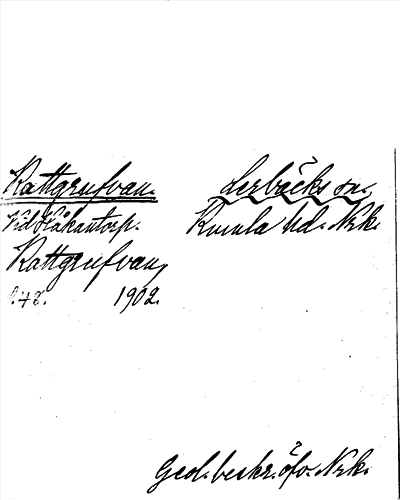 Kattgrufvan. Lerbäcks sn.,
Vid Håkantorp. Kumla hd. Nrk.
Kattgrufvan,
s. 48. 1902.
Geol. beskr. öfv. Nrk.